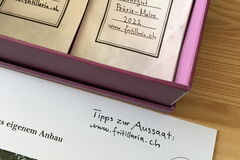 Prärie-Malve
2022
www.fritillaria.ch
Tipps zur Aussaat:
www.fritillaria.ch
s eigenem Anbau